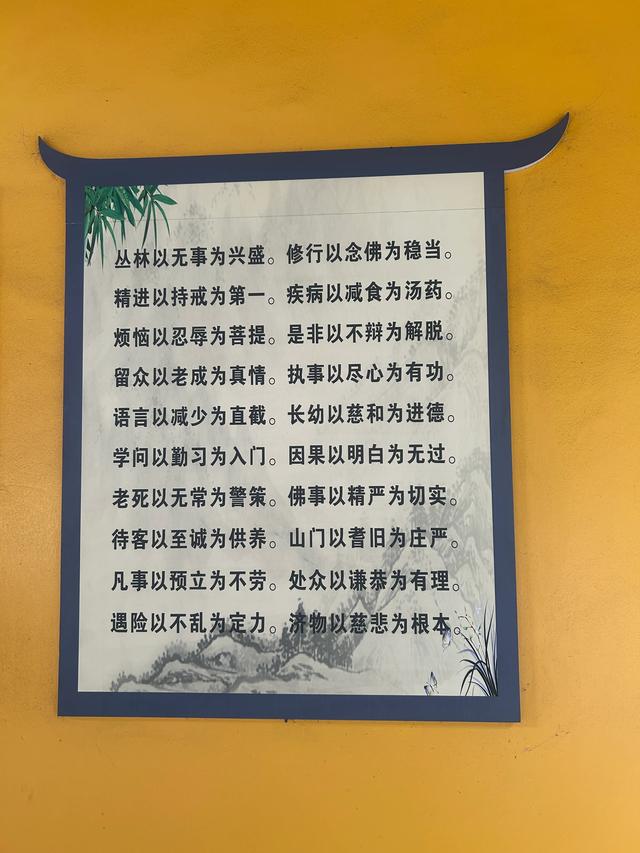 丛林以无事为兴盛。修行以念佛为稳当。
精进以持戒为第一。疾病以减食为汤药。
烦恼以忍辱为菩提。是非以不辩为解脱。
留众以老成为真情。执事以尽心为有功。
语言以减少为直截。长幼以慈和为进德。
学问以勤习为入门。因果以明白为无过。
老死以无常为警策。佛事以精严为切实。
待客以至诚为供养。山门以耆旧为庄严。
凡事以预立为不劳。处众以谦恭为有理。
遇险以不乱为定力。济物以慈悲为根本。